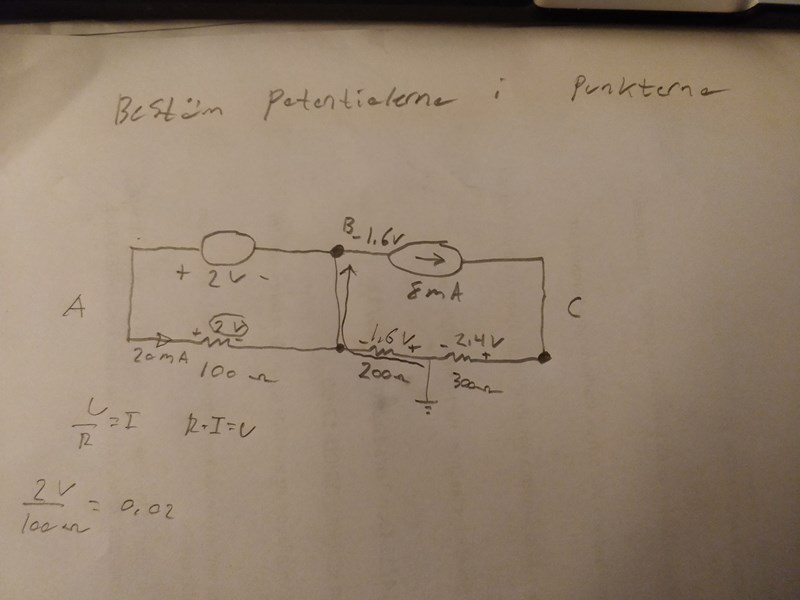 Bestäm Potentialerna i Punkterna
B -1.6V
+ 2V -
8mA
A
C
+ 2V - - 1.6V + - 2.4V +
20mA 100Ω 200Ω 300Ω
U/R = I R·I=U
2V/100Ω = 0,02